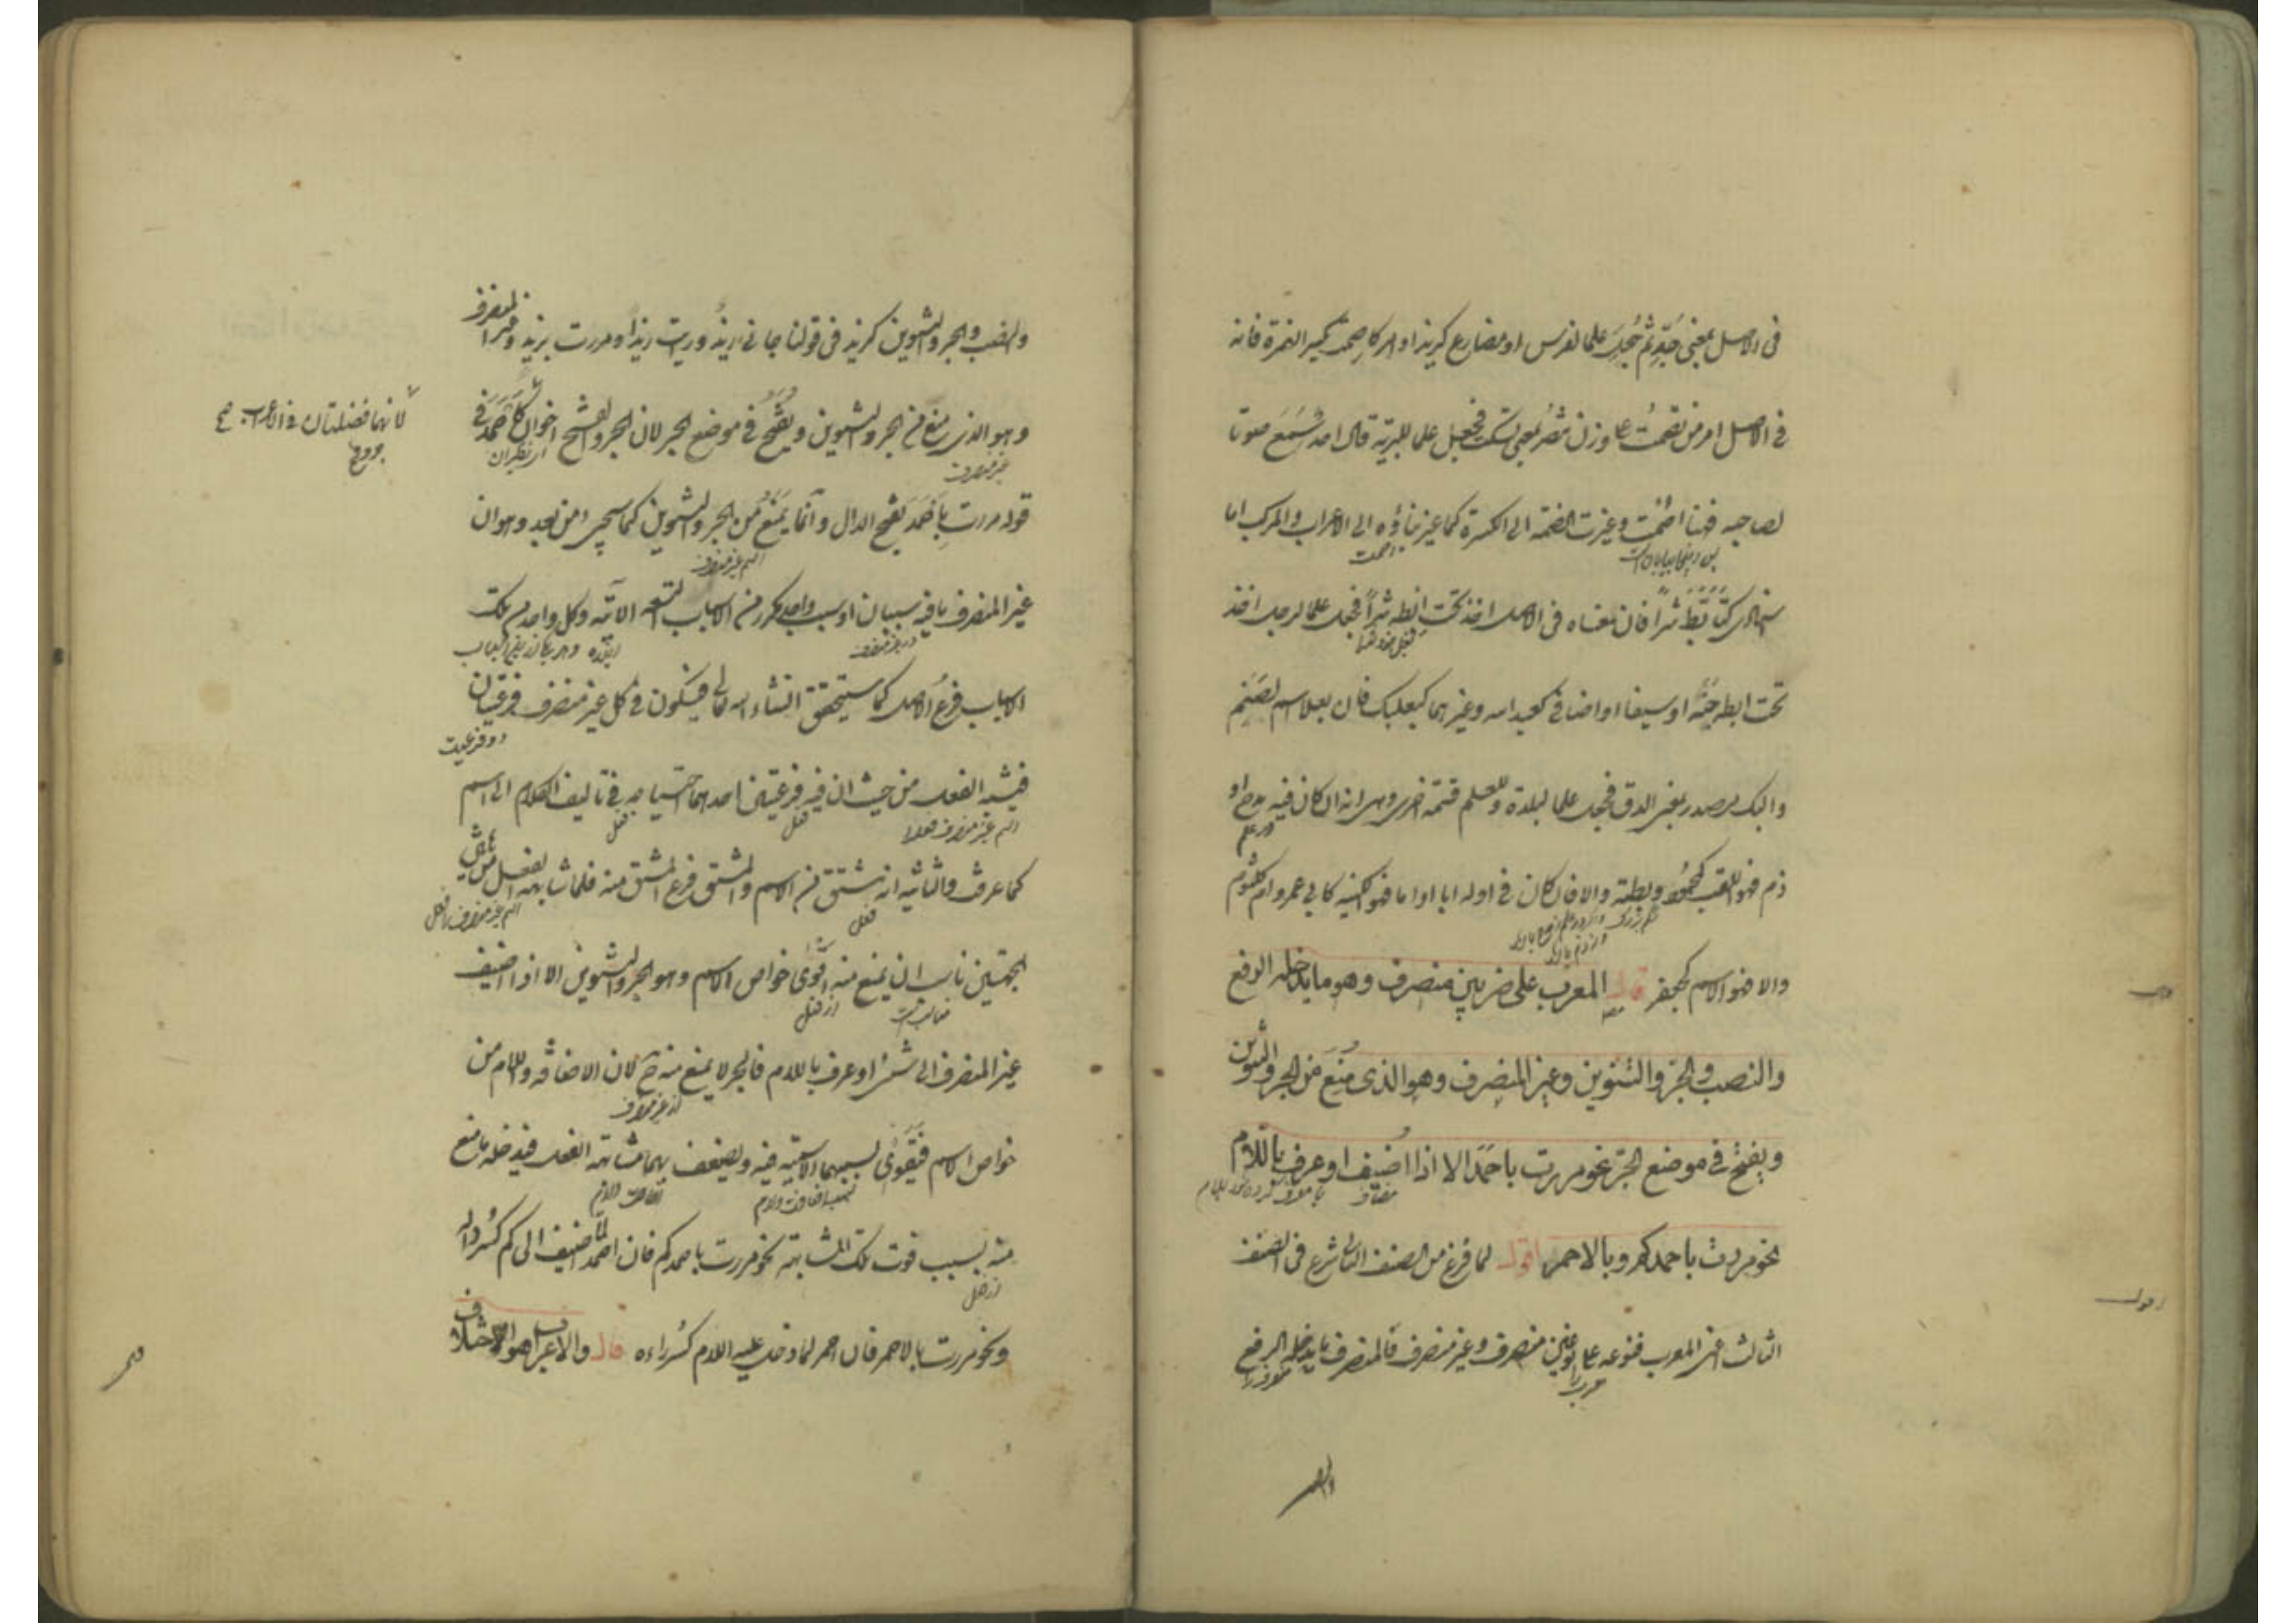 فى الاصل بمعنى جُدٍّ ثم جُعِلَ علما لفرس او مضارع كيزيد او امر كاصمت بكسر الهمزة فانه
فى الاصل امر من تصمت على وزن تنصر بمعنى تسكت فجعل علما للبرية قال احد تسمع صوتا
لصاحبه فيها اصمت وغيرت الضمة الى الكسرة كما غير بناؤه الى الاعراب والمركب اما
اسنادى كتأبّط شرّاً فان معناه فى الاصل اخذ تحت ابطه شرّاً فجعل علما لرجل اخذ
تحت ابطه حيّة او سيفا او اضافى كعبد الله وغيرهما كبعلبك فان بعلا اسم لصنم
والبك مصدر بمعنى الدق فجعل علما لبلدة وللعلم قسمة اخرى وهى انه ان كان فيه مدح او
ذم فهو اللقب كمحمود وبطة والا فان كان فى اوله ابا او اما فهو الكنية كابى عمرو وام كلثوم
والا فهو الاسم كجعفر قال المعرب على ضربين منصرف وهو ما يدخله الرفع
والنصب والجرّ والتنوين وغير المنصرف وهو الذى مُنِعَ من الجر والتنوين
ويفتح فى موضع الجرّ نحو مررت باحمد الا اذا اضيف او عرف باللام
مضاف
نحو مررت باحمدكم وبالاحمر اقول لما فرغ من الصنف الثانى شرع فى الصنف
الثالث اعنى المعرب فنوعه على نوعين منصرف وغير منصرف فالمنصرف ما يدخله الرفع
والنصب
والنصب والجر والتنوين كزيد فى قولنا جاءنى زيدٌ ورايت زيداً ومررت بزيد وغير المنصرف
وهو الذى منع من الجر والتنوين ويفتح فى موضع الجر لان الجر والفتح اخوان كاحمد فى
غير منصرف
لانهما فضلتان فى الاعراب
قوله مررت باحمد بفتح الدال وانما يمنع من الجر والتنوين كما سيجىء من بعد وهو ان
اسم غير منصرف
غير المنصرف ما فيه سببان او سبب واحد مكرر من الاسباب التسعة الآتية وكل واحد من تلك
در غير منصرف
الاسباب فرع الاصل كما سيتحقق انشاء الله تعالى فيكون فى كل غير منصرف فرعيتان
دو فرعيت
فيشبه الفعل من حيث ان فيه فرعيتين احدهما احتياجه فى تاليف الكلام الى اسم
فعل
كما عرفت والثانية انه مشتق من الاسم والمشتق فرع المشتق منه فلما شابه الفعل من هاتين
اسم غير منصرف با فعل
الجهتين ناسب ان يمنع منه اقوى خواص الاسم وهو الجر والتنوين الا اذا اضيف
از فعل
غير المنصرف الى شىء او عرف باللام فالجر لا يمنع منه ح لان الاضافة واللام من
از غير منصرف
خواص الاسم فيقوى بسببهما الاسمية فيه ويضعف بهما مشابهة الفعل فيدخله ما منع
بسبب اضافت ولام
منه بسبب قوت تلك المشابهة نحو مررت باحمدكم فان احمد لما اضيف الى كم كسر داله
ونحو مررت بالاحمر فان احمر لما دخل عليه اللام كسر راءه قال والاعراب هو اختلاف